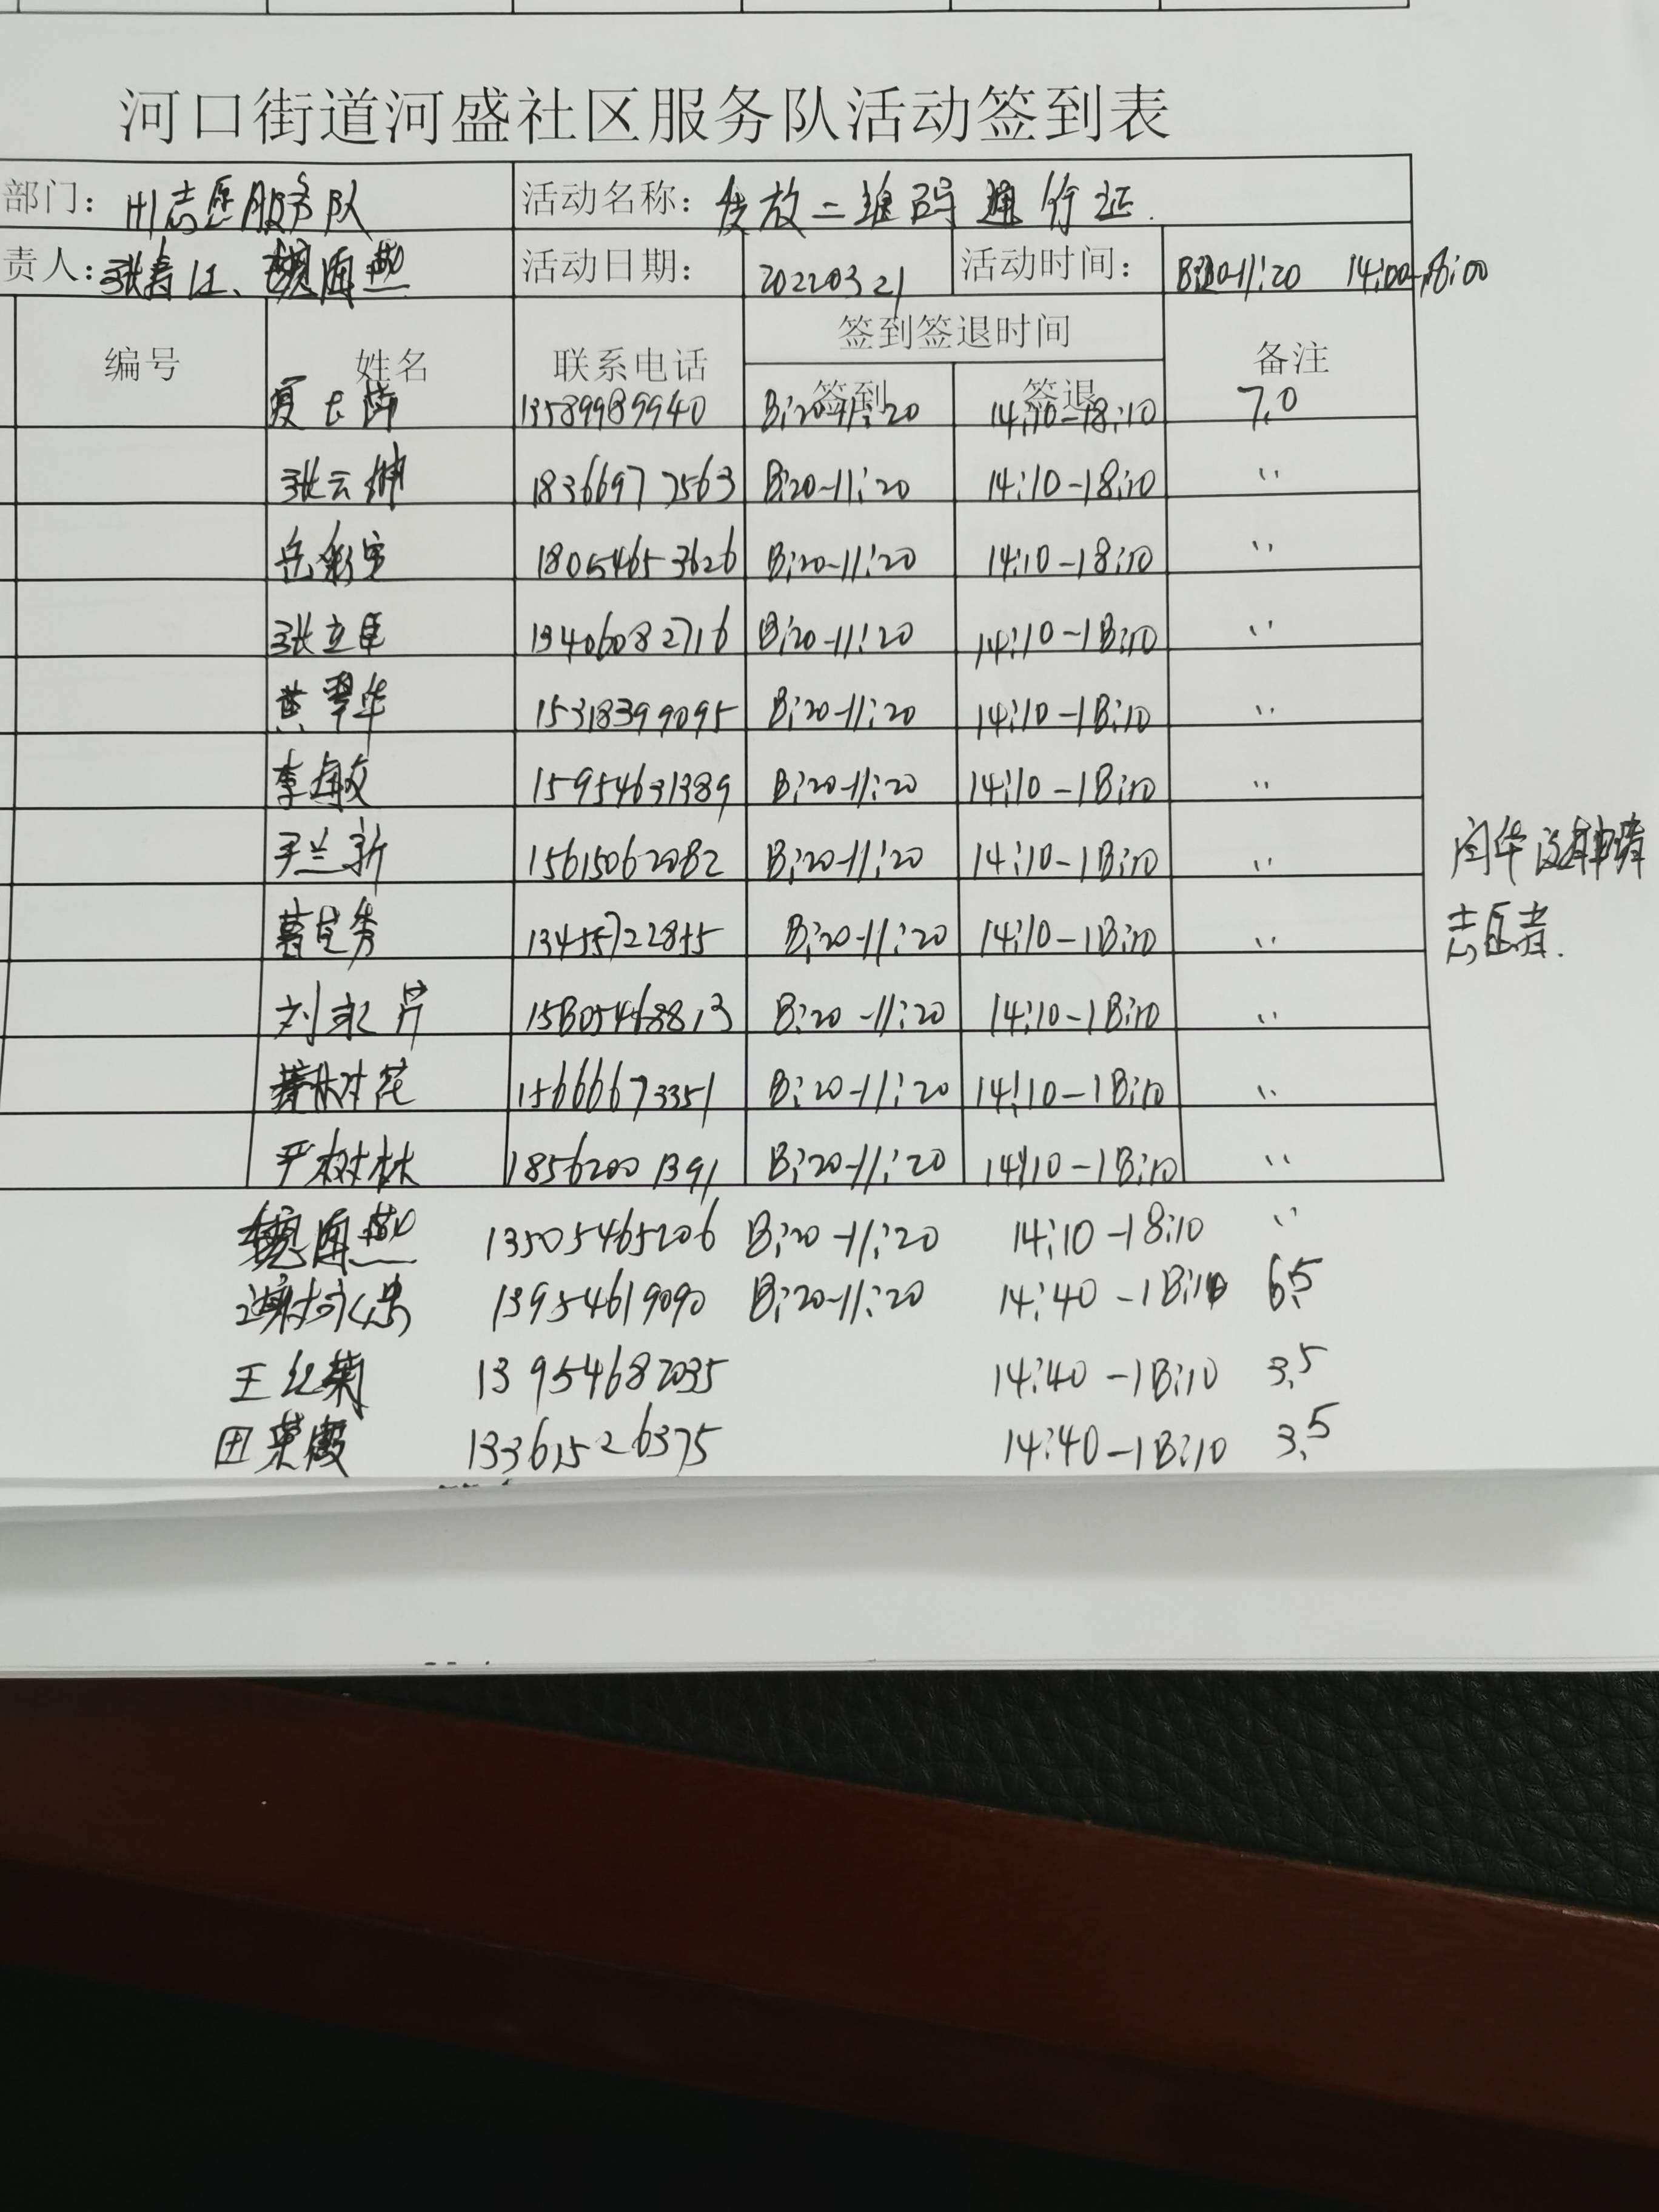 河口街道河盛社区服务队活动签到表
部门: 志愿服务队 活动名称: 发放二维码通行证.
责人: 张寿江、魏海燕 活动日期: 20220321 活动时间: 8:20-11:20 14:00-18:00
编号 姓名 联系电话 签到签退时间 备注
签到 签退
夏 13589989940 8:20-11:20 14:10-18:10 7.0
张云 18366977563 8:20-11:20 14:10-18:10 〃
岳彩 18054653626 8:20-11:20 14:10-18:10 〃
张立 13406082716 8:20-11:20 14:10-18:10 〃
黄翠华 15318399095 8:20-11:20 14:10-18:10 〃
李海敏 15954631389 8:20-11:20 14:10-18:10 〃
兰新 15615062082 8:20-11:20 14:10-18:10 〃
秀 8:20-11:20 14:10-18:10 〃
刘永芹 15805468813 8:20-11:20 14:10-18:10 〃
树花 15666673351 8:20-11:20 14:10-18:10 〃
严树林 18562001391 8:20-11:20 14:10-18:10 〃
魏海燕 13505465206 8:20-11:20 14:10-18:10 〃
13954619090 8:20-11:20 14:40-18:10 6.5
王红菊 13954682035 14:40-18:10 3.5
田荣霞 13361526375 14:40-18:10 3.5
华没有申请
志愿者.